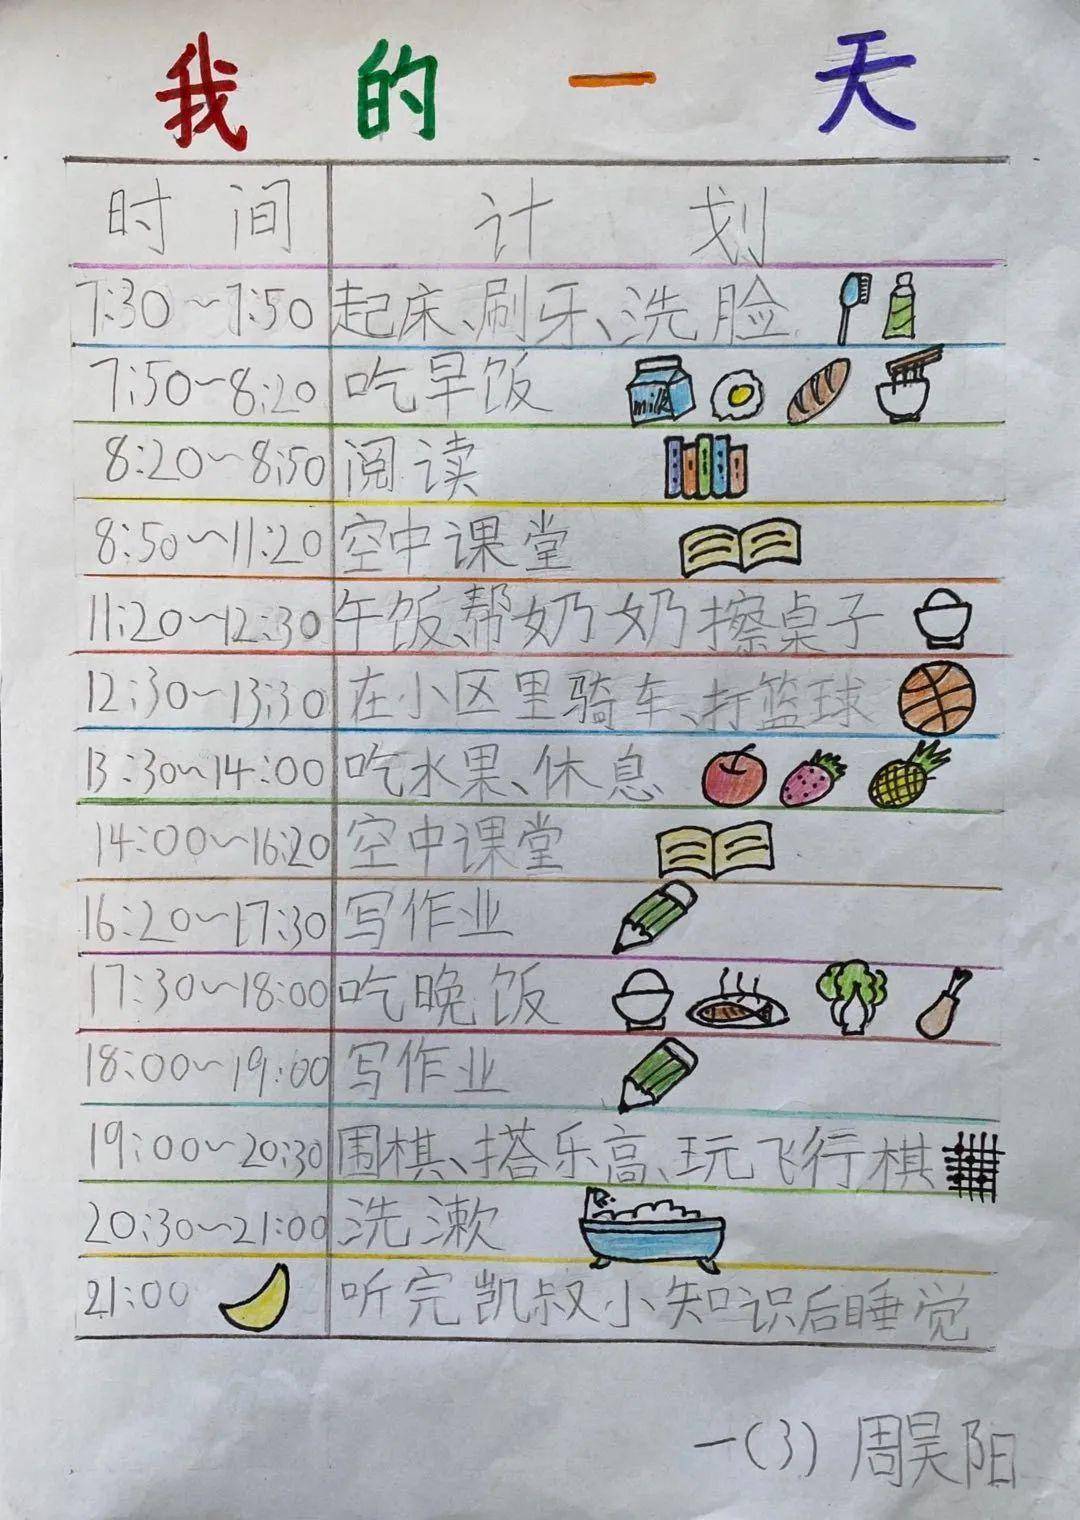 我的一天
时间 计划
7:30~7:50 起床、刷牙、洗脸
7:50~8:20 吃早饭
milk
8:20~8:50 阅读
8:50~11:20 空中课堂
11:20~12:30 午饭、帮奶奶擦桌子
12:30~13:30 在小区里骑车、打篮球
13:30~14:00 吃水果、休息
14:00~16:20 空中课堂
16:20~17:30 写作业
17:30~18:00 吃晚饭
18:00~19:00 写作业
19:00~20:30 围棋、搭乐高、玩飞行棋
20:30~21:00 洗漱
21:00 听完凯叔小知识后睡觉
一(3) 周昊阳